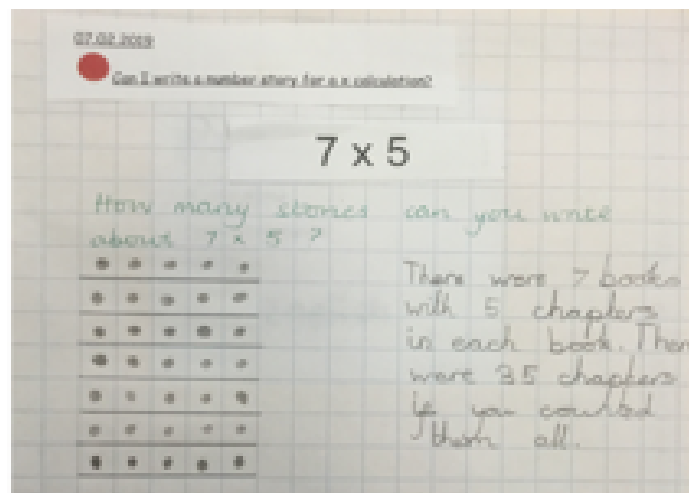 07.02.2019
Can I write a number story for a x calculation?
7 x 5
How many stories can you write
about 7 x 5 ?
There were 7 books
with 5 chapters
in each book. Ther
were 35 chapters
if you counted
them all.